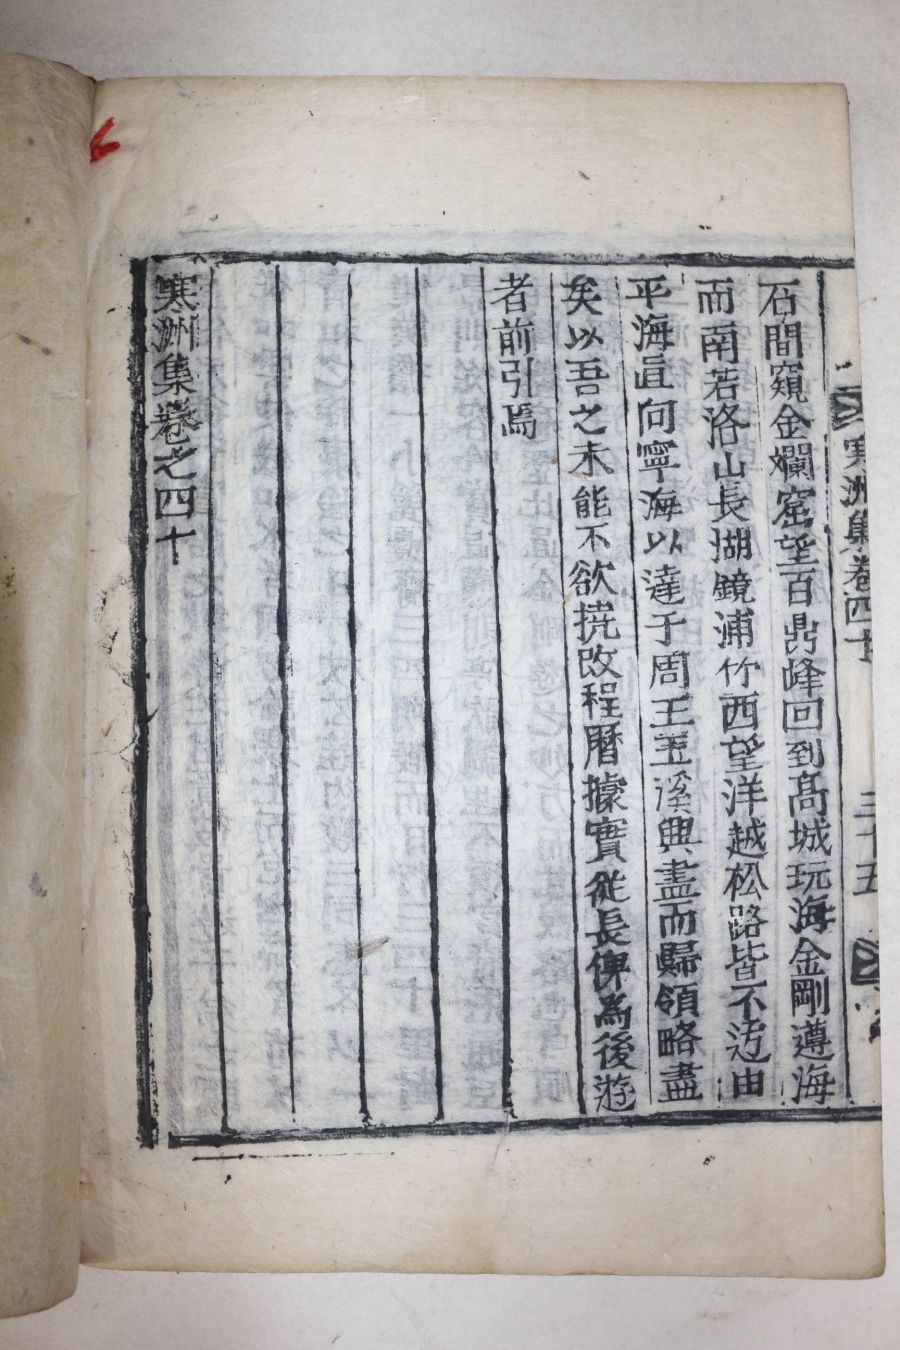 寒洲集卷四十
三十五
石間窺金爛窟望百鼎峰回到高城玩海金剛遵海
而南若洛山長湖鏡浦竹西望洋越松路皆不迃由
平海直向寧海以達于周王玉溪興盡而歸領略盡
矣以吾之未能不欲撓改程曆據實從長俾爲後遊
者前引焉
寒洲集卷之四十